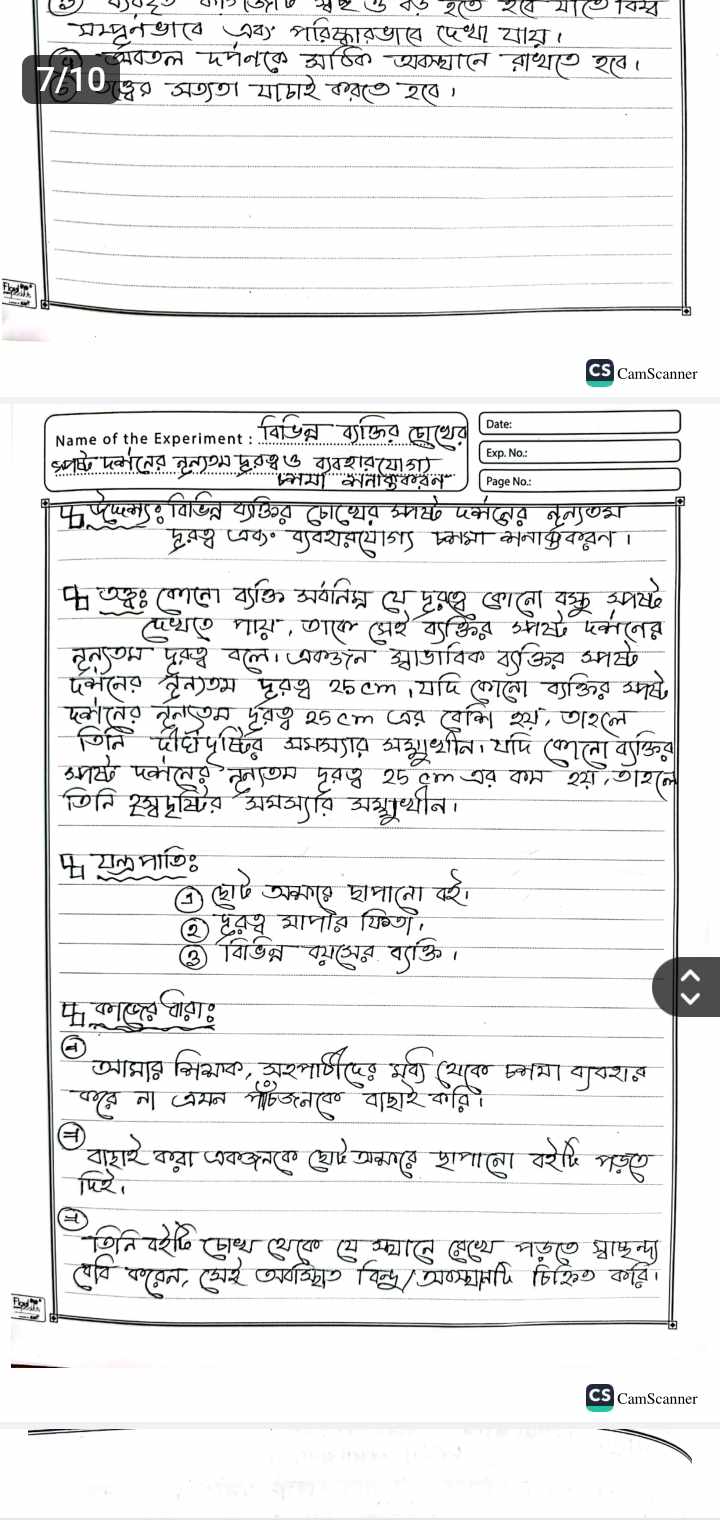 ব্যবহৃত কাগজটি স্বচ্ছ ও বড় হতে হবে যাতে বিম্ব
সম্পূর্নভাবে এবং পরিষ্কারভাবে দেখা যায়।
অবতল দর্পনকে সঠিক অবস্থানে রাখতে হবে।
তত্ত্বের সত্যতা যাচাই করতে হবে।
7/10
CS CamScanner
Name of the Experiment : বিভিন্ন ব্যক্তির চোখের
স্পষ্ট দর্শনের নূন্যতম দূরত্ব ও ব্যবহারযোগ্য
চশমা শনাক্তকরন
Date:
Exp. No.:
Page No.:
উদ্দেশ্য: বিভিন্ন ব্যক্তির চোখের স্পষ্ট দর্শনের নূন্যতম
দূরত্ব এবং ব্যবহারযোগ্য চশমা শনাক্তকরন।
তত্ত্ব: কোনো ব্যক্তি সর্বনিম্ন যে দূরত্বে কোনো বস্তু স্পষ্ট
দেখতে পায়, তাকে সেই ব্যক্তির স্পষ্ট দর্শনের
নূন্যতম দূরত্ব বলে। একজন স্বাভাবিক ব্যক্তির স্পষ্ট
দর্শনের নূন্যতম দূরত্ব 25 cm, যদি কোনো ব্যক্তির স্পষ্ট
দর্শনের নূন্যতম দূরত্ব 25 cm এর বেশি হয়, তাহলে
তিনি দীর্ঘদৃষ্টির সমস্যার সম্মুখীন। যদি কোনো ব্যক্তির
স্পষ্ট দর্শনের নূন্যতম দূরত্ব 25 cm এর কম হয়, তাহলে
তিনি হ্রস্বদৃষ্টির সমস্যার সম্মুখীন।
যন্ত্রপাতি:
① ছোট অক্ষরে ছাপানো বই।
② দূরত্ব মাপার ফিতা,
③ বিভিন্ন বয়সের ব্যক্তি।
কাজের ধারা:
আমার শিক্ষক, সহপাঠীদের মধ্য থেকে চশমা ব্যবহার
করে না এমন পাঁচজনকে বাছাই করি।
বাছাই করা একজনকে ছোট অক্ষরে ছাপানো বইটি পড়তে
দিই।
তিনি বইটি চোখ থেকে যে স্থানে রেখে পড়তে স্বাচ্ছন্দ্য
বোধ করেন, সেই অবস্থিত বিন্দু/অবস্থানটি চিহ্নিত করি।
CS CamScanner